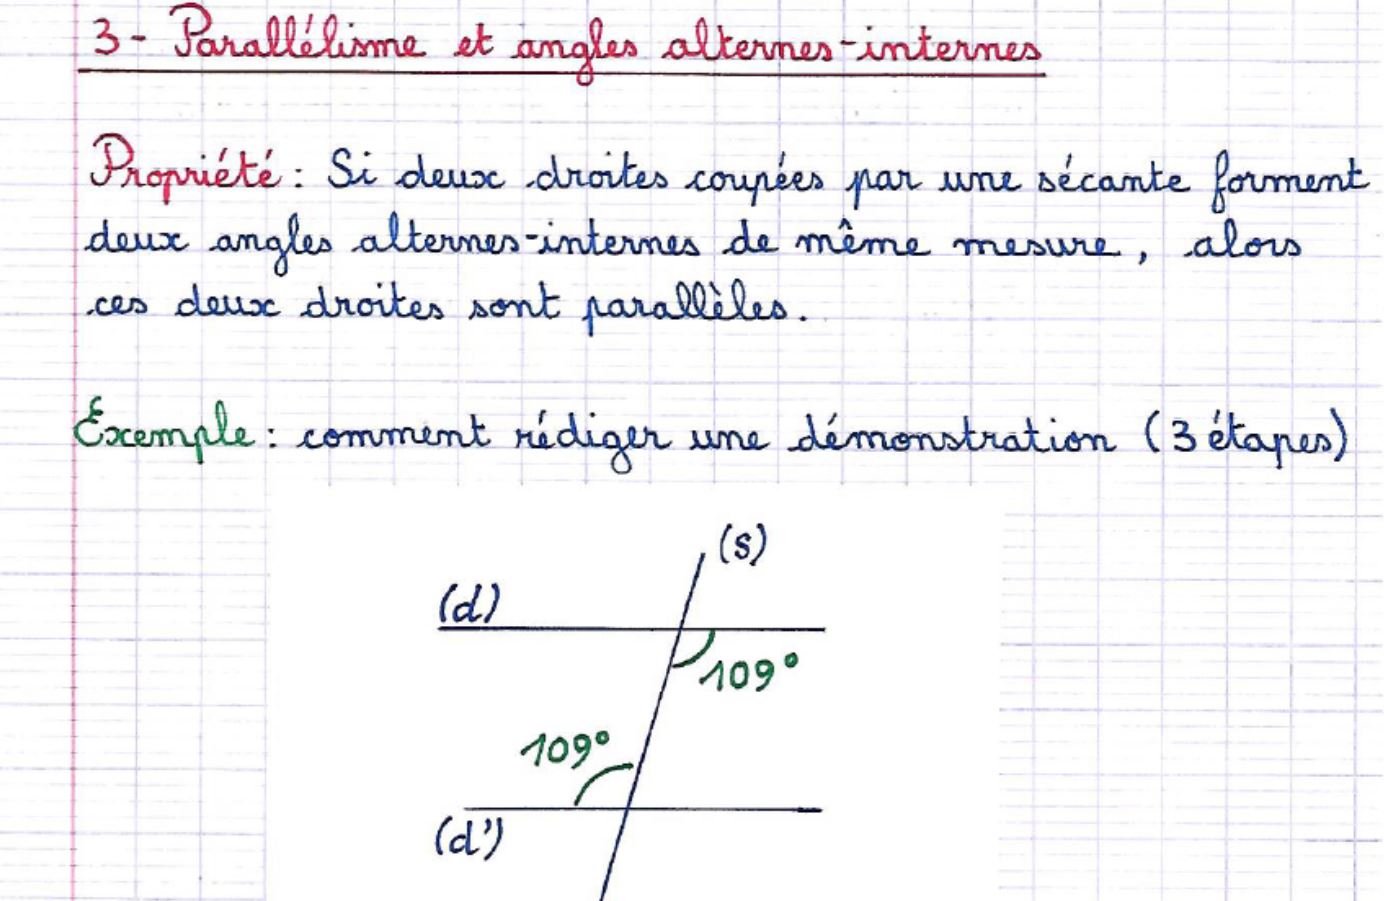 3 - Parallélisme et angles alternes-internes
Propriété : Si deux droites coupées par une sécante forment
deux angles alternes-internes de même mesure, alors
ces deux droites sont parallèles.
Exemple : comment rédiger une démonstration (3 étapes)
(s)
(d)
109°
109°
(d')